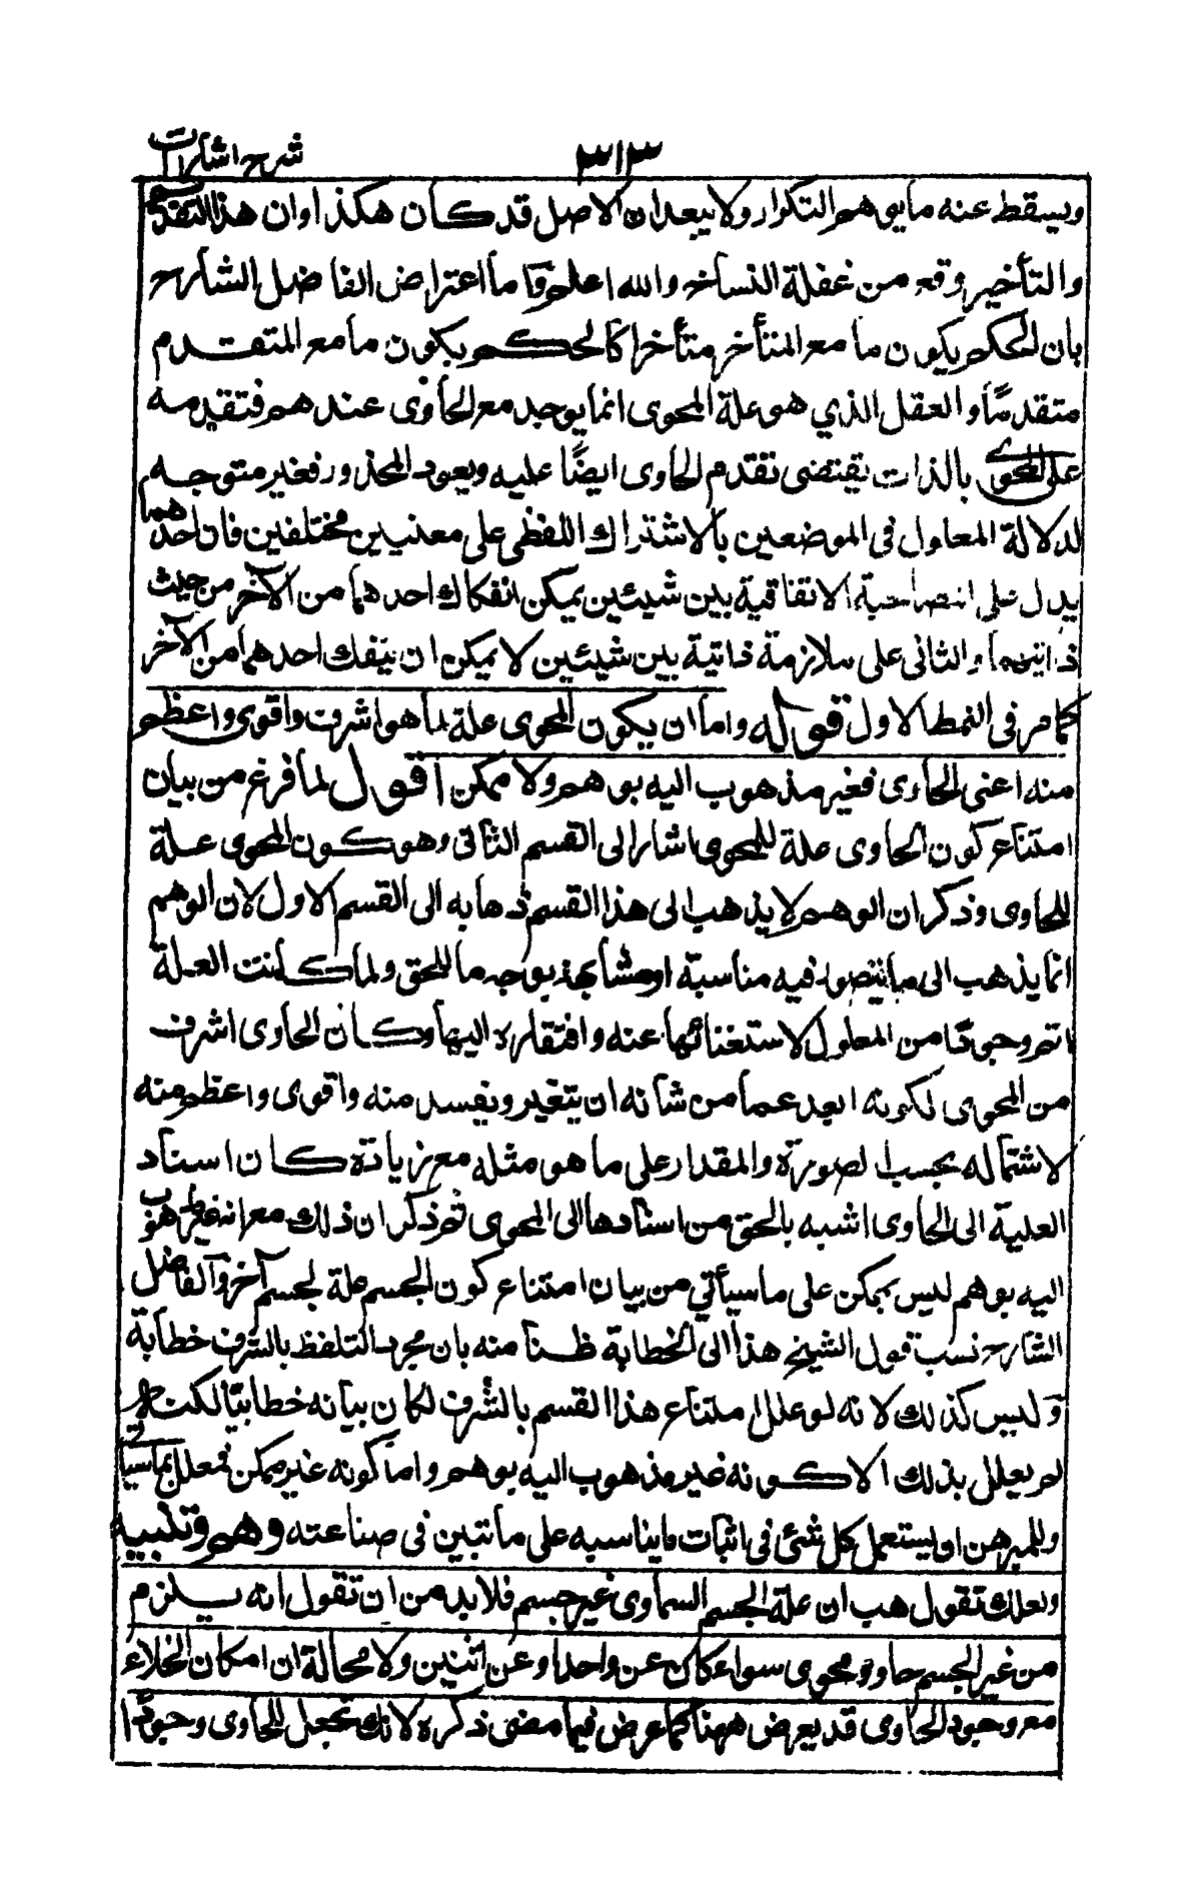 شرح اشارات
٣١٣
ويسقط عنه ما يوهم التكرار ولا يبعد ان الاصل قد كان هكذا وان هذا التقديم
والتأخير وقع من غفلة النساخ والله اعلم واما اعتراض الفاضل الشارح
بان الحكم بكون ما مع المتأخر متأخرا كالحكم بكون ما مع المتقدم
متقدما والعقل الذي هو علة المحوى انما يوجد مع الحاوى عندهم فتقدمه
على المحوى بالذات يقتضى تقدم الحاوى ايضًا عليه ويعود المحذور فغير متوجه
لدلالة المعاول فى الموضعين بالاشتراك اللفظى على معنيين مختلفين فان احدهما
يدل على المصاحبة الاتفاقية بين شيئين يمكن انفكاك احدهما من الآخر من حيث
ذاتيهما والثانى على ملازمة ذاتية بين شيئين لا يمكن ان ينفك احدهما من الآخر
كما مر فى النمط الاول قوله واما ان يكون المحوى علة لما هو اشرف واقوى واعظم
منه اعنى الحاوى فغير مذهوب اليه بوهم ولا ممكن اقول لما فرغ من بيان
امتناع كون الحاوى علة للمحوى اشار الى القسم الثانى وهو كون المحوى علة
للحاوى وذكر ان الوهم لا يذهب الى هذا القسم ذهابه الى القسم الاول لان الوهم
انما يذهب الى ما يتصور فيه مناسبة او مشابهة بوجه ما للحق ولما كانت العلة
اتم وجودًا من المعلول لاستغنائها عنه وافتقاره اليها وكان الحاوى اشرف
من المحوى لكونه ابعد عما من شانه ان يتغير ويفسد منه واقوى واعظم منه
لاشتماله بحسب الصورة والمقدار على ما هو مثله مع زيادة كان اسناد
العلية الى الحاوى اشبه بالحق من اسنادها الى المحوى ثم ذكر ان ذلك مع انه غير مذهوب
اليه بوهم ليس بممكن على ما سيأتي من بيان امتناع كون الجسم علة لجسم آخر والفاضل
الشارح نسب قول الشيخ هذا الى الخطابة ظنا منه بان مجرد التلفظ بالشرف خطابة
وليس كذلك لانه لو علل امتناع هذا القسم بالشرف لكان بيانه خطابيًا لكنه
لم يعلل بذلك الا كونه غير مذهوب اليه بوهم واما كونه غير ممكن فمعلل بما سيأتى
وللمبرهن ان يستعمل كل شئى فى اثبات ما يناسبه على ما تبين فى صناعته وهم وتنبيه
ولعلك تقول هب ان علة الجسم السماوى غير جسم فلا بد من ان تقول انه يلزم
من غير الجسم حاو ومحوى سواء كان عن واحد او عن اثنين ولا محالة ان امكان الخلاء
مع وجود الحاوى قد يعرض ههنا كما عرض فيما مضى ذكره لانك تجعل للحاوى وجودًا